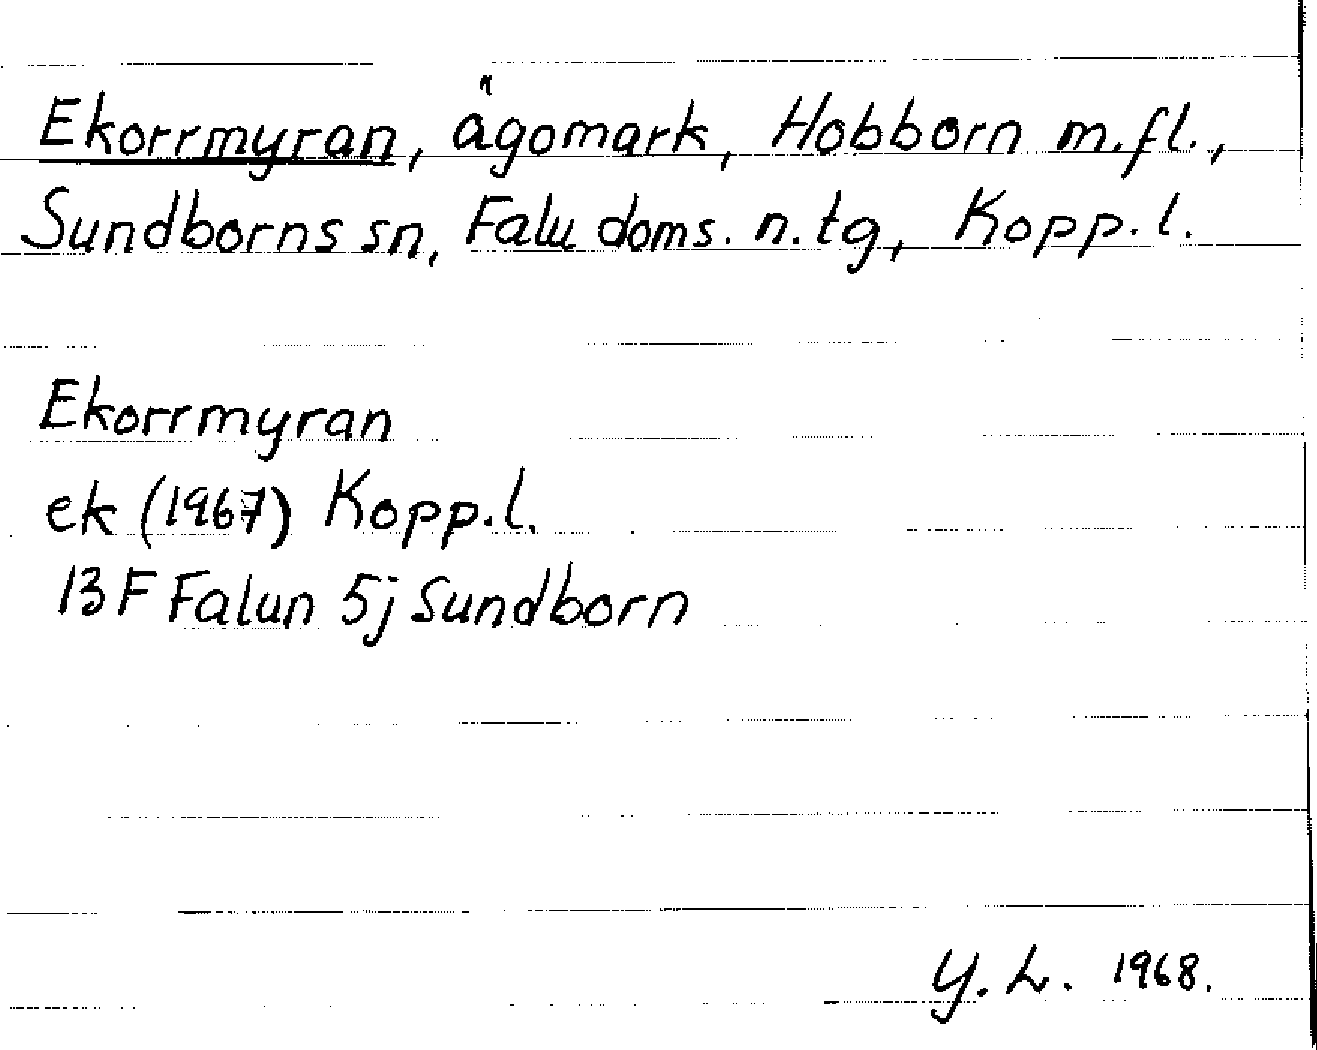 Ekorrmyran, ägomark, Hobborn m.fl.,
Sundborns sn, Falu doms. n. tg, Kopp. l.
Ekorrmyran
ek (1967) Kopp. l.
13 F Falun 5j Sundborn
Y. L. 1968.